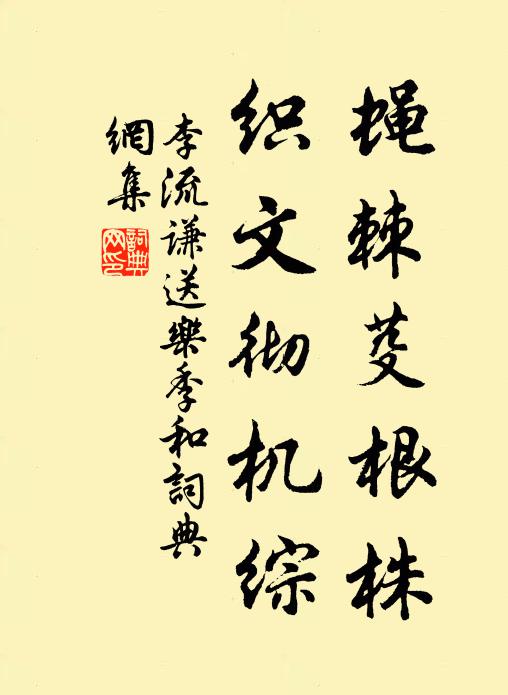 蝇棘芟根株
织文彻机综
李流谦送樂季和詞典
網集
詞典
网印